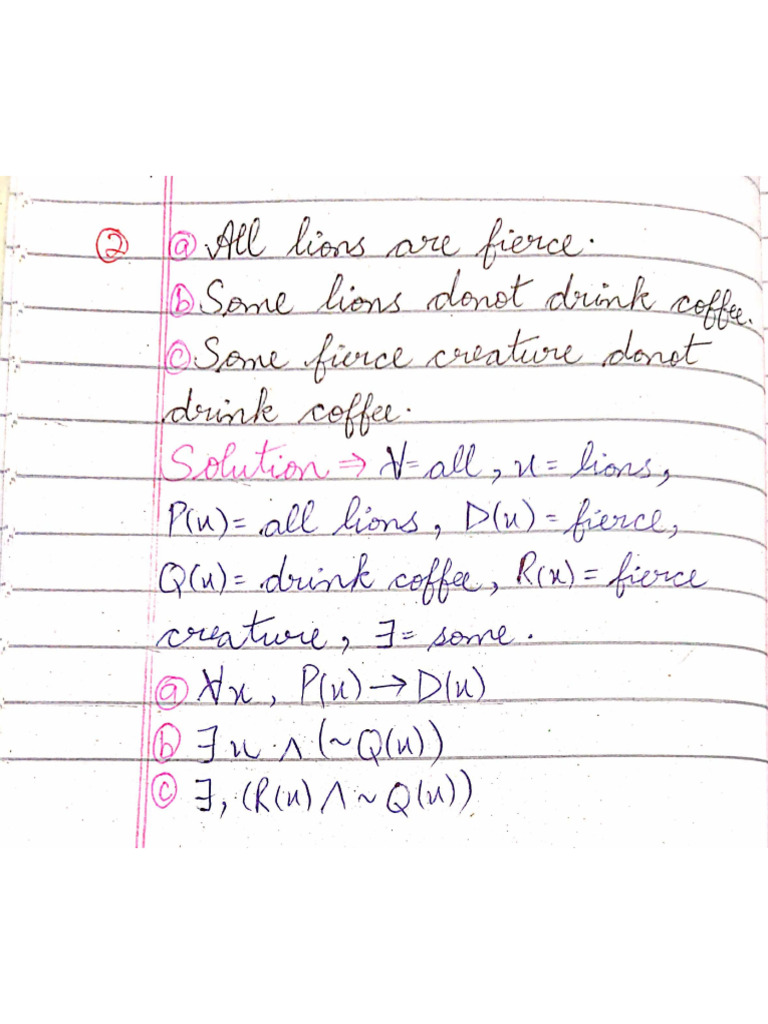 ② ⓐ All lions are fierce.
ⓑ Some lions donot drink coffee.
ⓒ Some fierce creature donot
drink coffee.
Solution ⇒ ∀=all, x= lions,
P(x)= all lions, D(x)= fierce,
Q(x)= drink coffee, R(x)= fierce
creature, ∃= some.
ⓐ ∀x, P(x)→D(x)
ⓑ ∃x ∧ (~Q(x))
ⓒ ∃, (R(x)∧~Q(x))